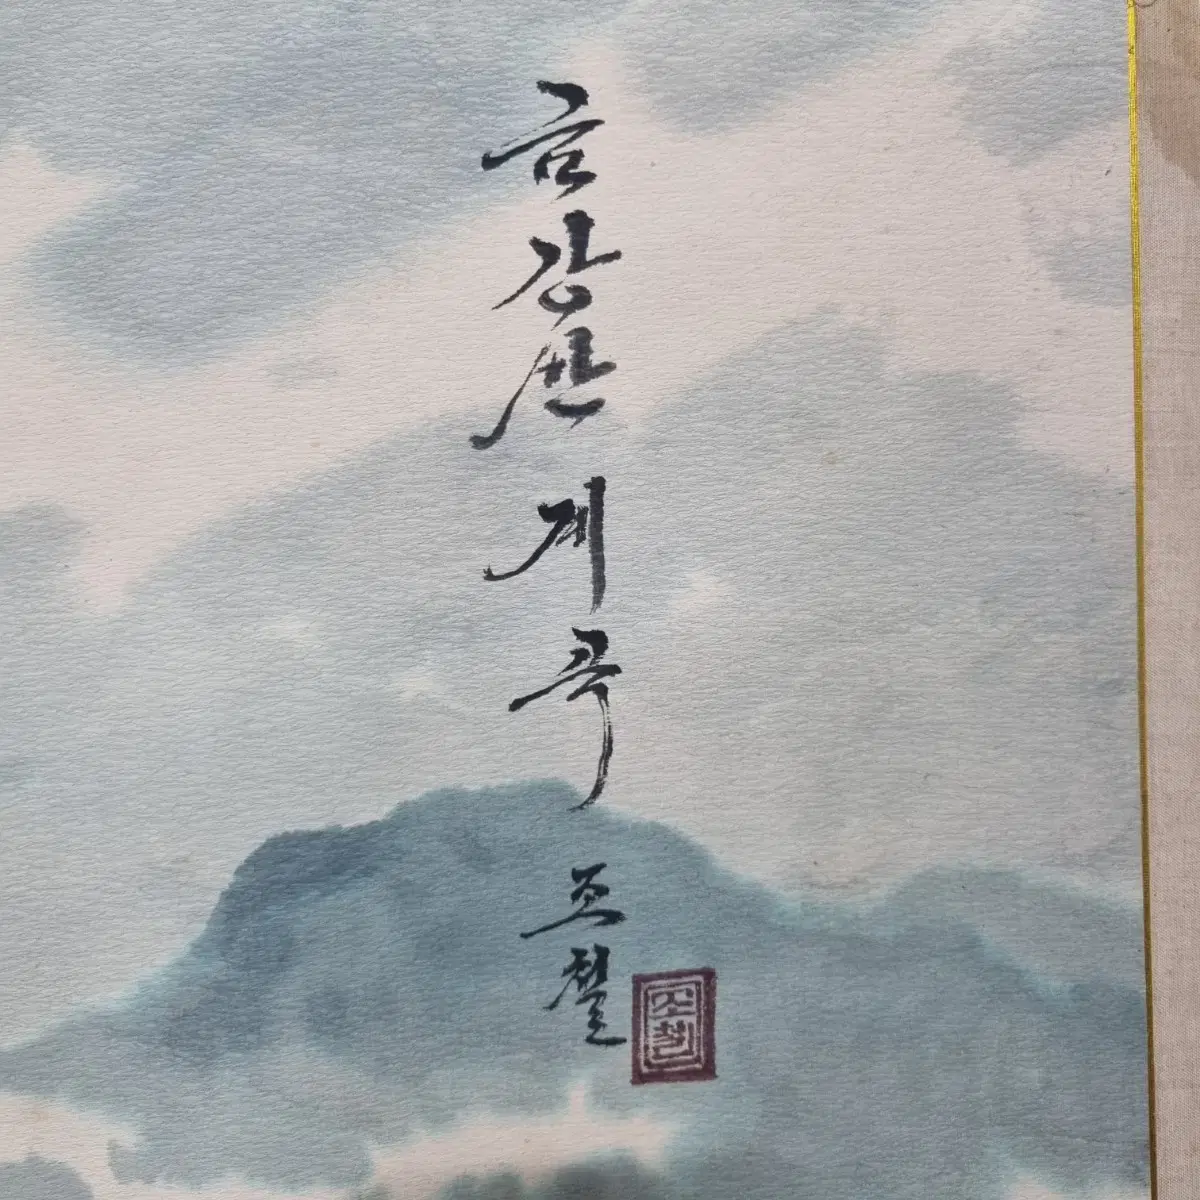 금강산 계곡 조철
조철